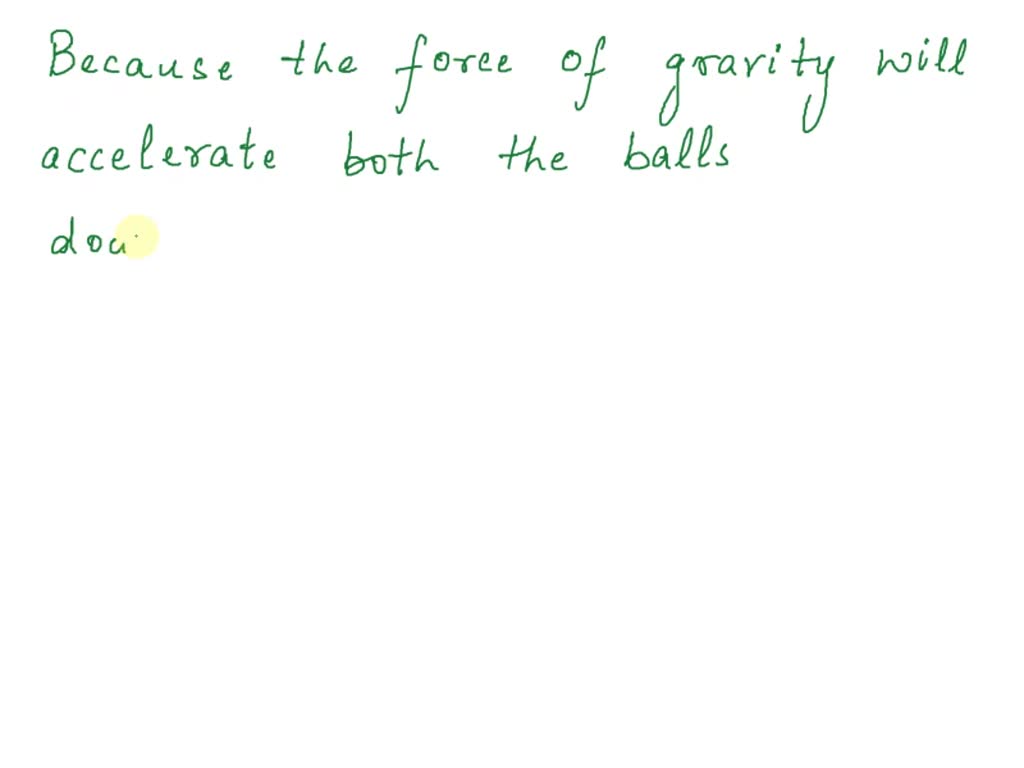 Because the force of gravity will
accelerate both the balls